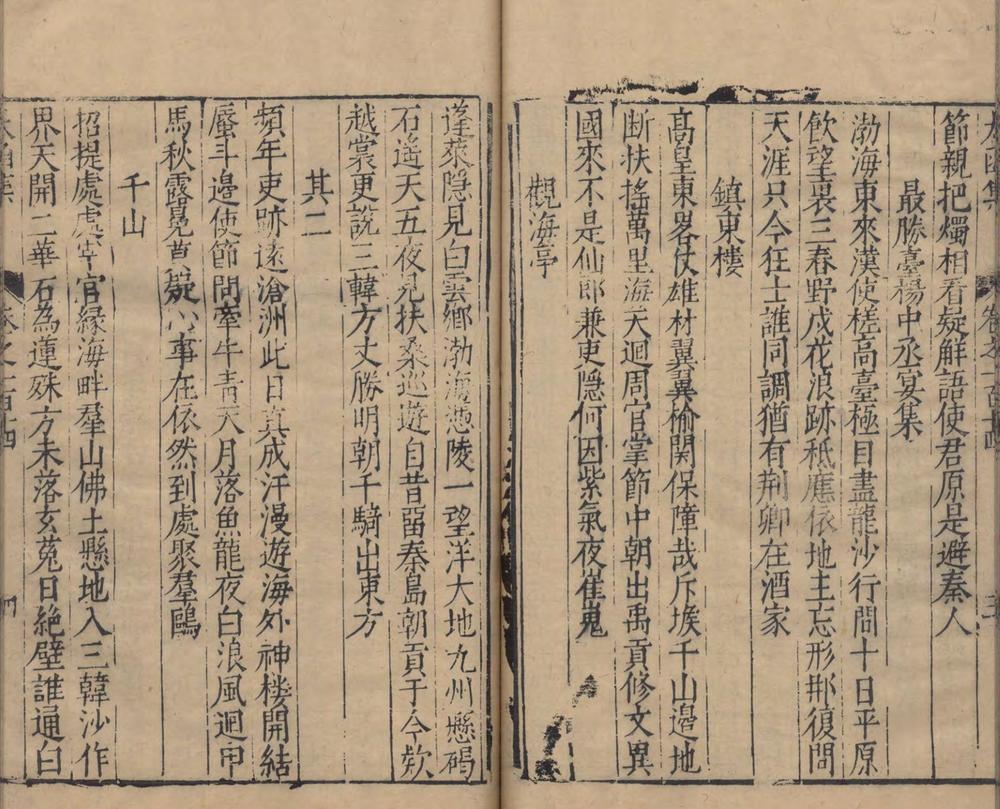 節親把燭相看疑解語使君原是避秦人
最勝臺楊中丞宴集
渤海東來漢使槎高臺極目盡龍沙行問十日平原
飲望裏三春野戍花浪跡秪應依地主忘形那復問
天涯只今狂士誰同調猶有荆卿在酒家
鎮東樓
高皇東畧仗雄材翼翼榆関保障哉斥堠千山邉地
断扶搖萬里海天迴周官掌節中朝出禹貢修文異
國來不是仙郎兼吏隠何因紫氣夜崔嵬
觀海亭
蓬萊隠見白雲鄉渤澥憑陵一望洋大地九州懸碣
石遙天五夜見扶桑巡遊自昔留秦島朝貢于今欵
越裳更說三韓方丈勝明朝千騎出東方
其二
頻年吏跡遠滄洲此日真成汗漫遊海外神楼開結
蜃斗邉使節問牽牛青天月落魚龍夜白浪風迴
馬秋露冕疑心事在依然到處聚羣鷗
千山
招提處處宰官緣海畔羣山佛土懸地入三韓沙作
界天開二華石為蓮殊方未落玄菟日絶壁誰通白